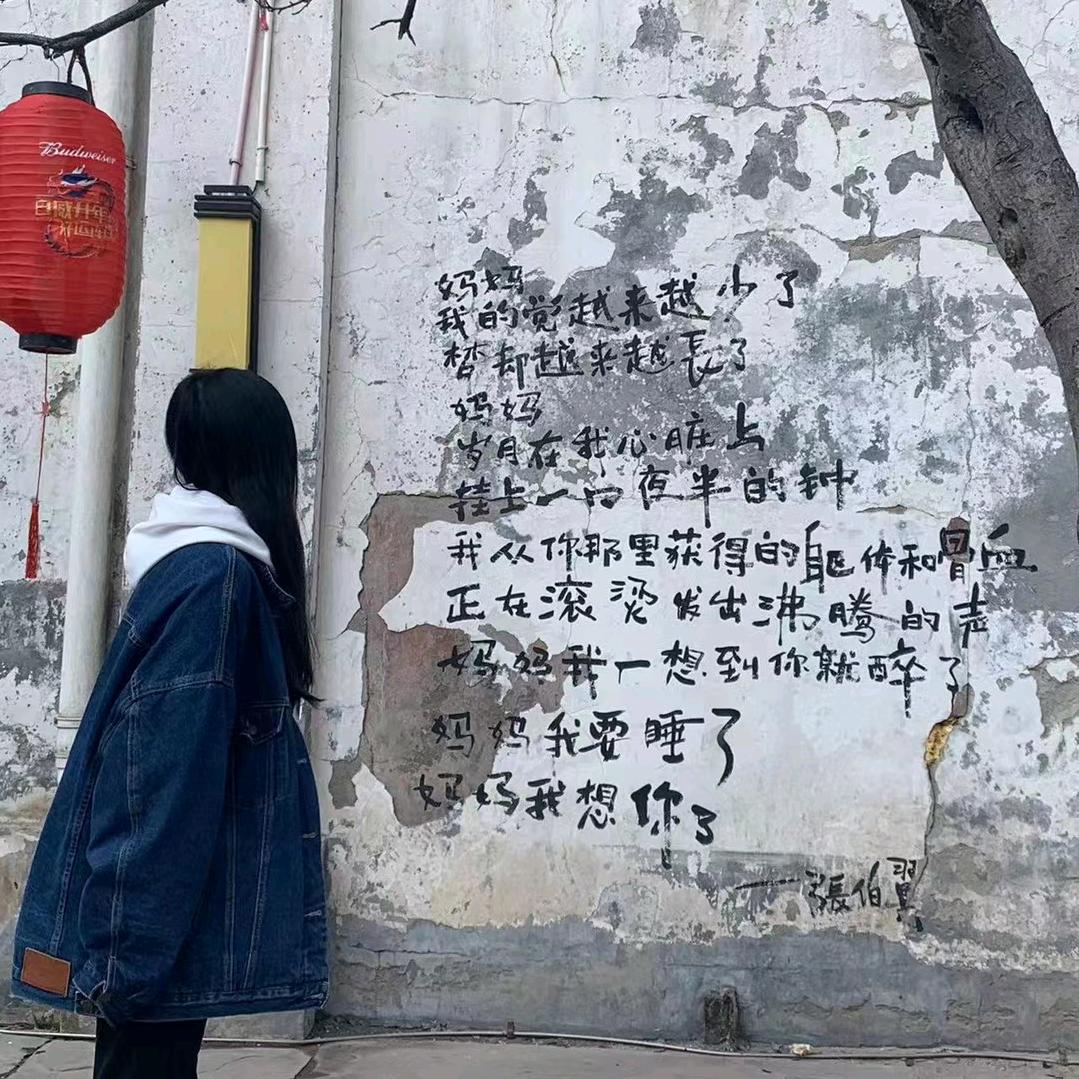 Budweiser
妈妈
我的觉越来越少了
梦却越来越長了
妈妈
岁月在我心脏上
挂上一口夜半的钟
我从你那里获得的躯体和骨血
正在滚烫发出沸腾的声
妈妈我一想到你就醉了
妈妈我要睡了
妈妈我想你了
——張伯翼